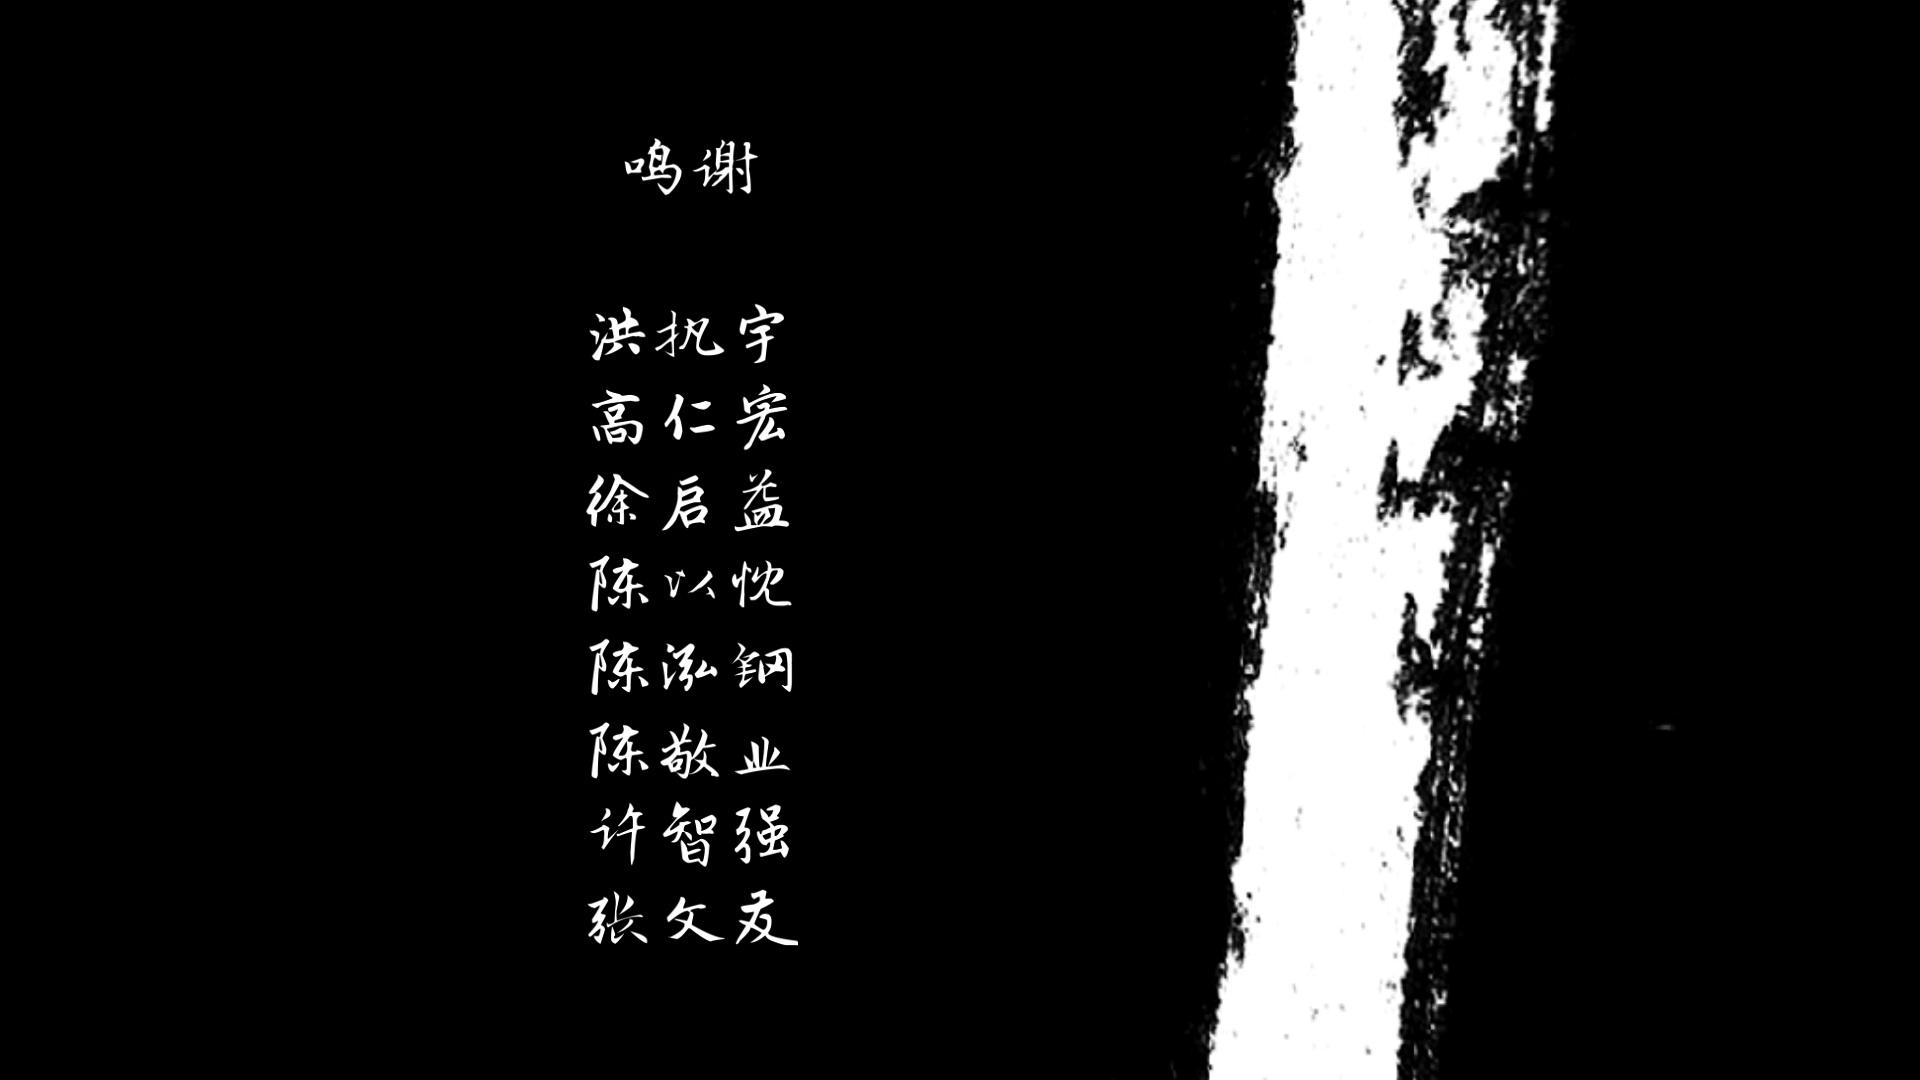 鸣谢
洪执宇
高仁宏
徐启益
陈以忱
陈泓钢
陈敬业
许智强
张文友